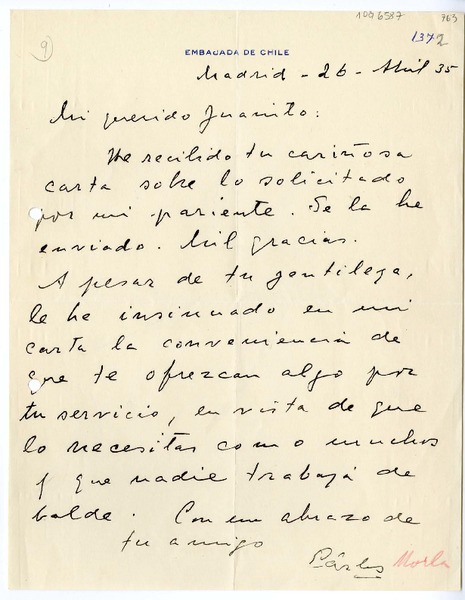 9
1096587
963
1372
EMBAJADA DE CHILE
Madrid - 26 - Abril 35
Mi querido Juanito:
He recibido tu cariñosa
carta sobre lo solicitado
por mi pariente. Se la he
enviado. Mil gracias.
A pesar de tu gentileza,
le he insinuado en mi
carta la conveniencia de
que te ofrezcan algo por
tu servicio, en vista de que
lo necesitas como muchos
y que nadie trabaja de
balde. Con un abrazo de
tu amigo
Carlos Morla